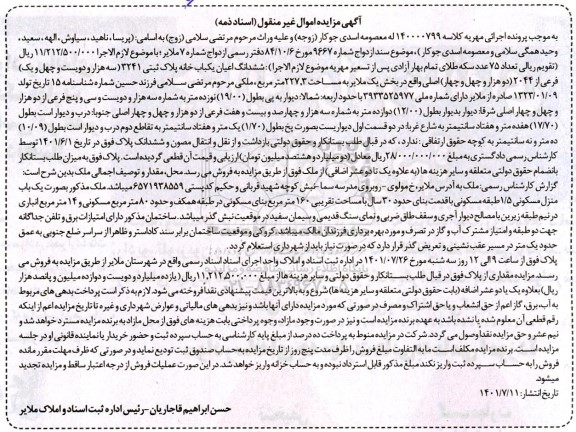 آگهی مزایده اموال غیر منقول (اسناد ذمه)
به موجب پرونده اجرائی مهریه کلاسه ۱۴۰۰۰۰۷۹۹ له معصومه اسدی جو کار (زوجه) و علیه وراث مرحوم مرتضی سلامی (زوج) به اسامی: (پریسا، ناهید، سیاوش، الهه، سعید،
وحید همگی سلامی و معصومه اسدی جو کار)، موضوع سند ازدواج شماره ۹۶۶۷ مورخ ۸۴/۱۰/۶ دفتر رسمی ازدواج شماره ۷ ملایر؛ با موضوع لازم الاجرا ۱۱/۲۱۲/۵۰۰/۰۰۰ ریال
(تقویم ریالی تعداد ۷۵ عدد سکه طلای تمام بهار آزادی پس از تسعیر مهریه موضوع لازم الاجرا): ششدانگ اعیان یکباب خانه پلاک ثبتی ۳۲۴۱ (سه هزار و دویست و چهل و یک)
فرعی از ۲۰۴۴ (دو هزار و چهل و چهار) اصلی واقع در بخش یک ملایر به مساحت ۲۲۷/۳ متر مربع، ملکی مرحوم مرتضی سلامی فرزند حسین شماره شناسنامه ۱۵ تاریخ تولد
۱۳۲۳/۰۱/۰۹ صادره از ملایر دارای شماره ملی ۳۹۳۳۵۲۵۹۷۷ با حدود اربعه: شمالا: دیوار به پی بطول (۱۹/۰۰) نوزده متر به شماره سه هزار و دویست و سی و پنج فرعی از دو هزار
و چهل و چهار اصلی شرقا: دیوار بدیوار بطول (۱۲/۰۰) دوازده متر به شماره سه هزار و چهارصد و بیست و هفت فرعی از دو هزار و چهل و چهار اصلی جنوبا: درب و دیوار است بطول
(۱۷/۷۰) هفده متر و هفتاد سانتیمتر به شارع غربا: در دو قسمت اول دیواریست بصورت پخ بطول (۱/۷۰) یک متر و هفتاد سانتیمتر به تقاطع دوم درب و دیوار است بطول (۱۰/۰۹)
ده متر و نه سانتیمتر به کوچه حقوق ارتفاقی: ندارد، که در قبال طلب بستانکار و حقوق دولتی بازداشت و از نقل و انتقال مصون و ششدانگ پلاک فوق در تاریخ ۱۴۰۱/۶/۱ توسط
کارشناس رسمی دادگستری به مبلغ ۲۸/۰۰۰/۰۰۰/۰۰۰ ریال معادل (دو میلیارد و هشتصد میلیون تومان) ارزیابی و قیمت آن قطعی گردیده است. پلاک فوق به میزان طلب بستانکار
بانضمام حقوق دولتی متعلقه و سایر هزینه ها (به علاوه یک تا دو عشر اضافی) از ملک فوق از طریق مزایده به فروش می رسد. محل، مقدار و توصیف اجمالی ملک بدین شرح است:
گزارش کارشناس رسمی: ملک به آدرس ملایر خ مولوی - روبروی مدرسه سما - نبش کوچه شهید قربانی و حکیم کدپستی ۶۵۷۱۹۳۸۵۵۹ میباشد. ملک مذکور بصورت یک باب
منزل مسکونی ۱/۵ طبقه مسکونی با قدمت بنای حدود ۳۰ سال با مساحت تقریبی ۱۶۰ متر مربع بنای مسکونی در طبقه همکف و حدود ۸۰ متر مربع مسکونی و ۱۴ متر مربع انباری
در نیم طبقه زیرین با مصالح دیوار آجری و سقف طاق ضربی و نمای سنگ قدیمی و سیمان سفید در موقعیت نبش گذر میباشد. ساختمان مذکور دارای امتیازات برق و تلفن جداگانه
جهت دو طبقه و امتیاز مشترک آب و گاز در تصرف و مورد بهره برداری فرزندان مالک میباشد. کروکی و موقعیت ساختمان برابر سند کاداستر و ظاهرا از سراسر ضلع جنوبی به عمق
حدود یک متر در مسیر عقب نشینی و تعریض گذر قرار دارد که در صورت نیاز باید از شهرداری استعلام گردد.
پلاک فوق از ساعت ۹ الی ۱۲ روز سه شنبه مورخ ۱۴۰۱/۰۷/۲۶ در اداره ثبت اسناد و املاک واحد اجرای اسناد رسمی واقع در شهرستان ملایر از طریق مزایده به فروش می
رسد. مزایده مقداری از پلاک فوق در قبال طلب بستانکار و حقوق دولتی و سایر هزینه ها از مبلغ ۱۱,۲۱۲,۵۰۰,۰۰۰ ریال (یازده میلیارد و دویست و دوازده میلیون و پانصد هزار
ریال) بعلاوه یک یا دو عشر اضافه (بابت حقوق دولتی متعلقه و سایر هزینه ها) شروع و به بالاترین قیمت پیشنهادی نقدا فروخته می شود. لازم به ذکر است پرداخت بدهی های مربوط
به آب، برق، گاز اعم از حق انشعاب و یا حق اشتراک و مصرف در صورتی که مورد مزایده دارای آنها باشد و نیز بدهی های مالیاتی و عوارض شهرداری و غیره تا تاریخ مزایده اعم از اینکه
رقم قطعی آن معلوم شده یا نشده باشد به عهده برنده مزایده است و نیز در صورت وجود مازاد، وجوه پرداختی بابت هزینه های فوق از محل مازاد به برنده مزایده مسترد خواهد شد و
نیم عشر و حق مزایده نقدا وصول می گردد. شرکت در مزایده منوط به پرداخت ده درصد از مبلغ پایه کارشناسی به حساب سپرده ثبت و حضور خریدار یا نماینده قانونی او در جلسه
مزایده است. برنده مزایده مکلف است ما به التفاوت مبلغ فروش را ظرف مدت پنج روز از تاریخ مزایده به حساب صندوق ثبت تودیع نماید و در صورتی که ظرف مهلت مقرر مانده
فروش را به حساب سپرده ثبت واریز نکند مبلغ مذکور قابل استرداد نبوده و به حساب خزانه واریز خواهد شد. در این صورت عملیات فروش از درجه اعتبار ساقط و مزایده تجدید
میشود
تاریخ انتشار: ۱۴۰۱/۷/۱۱
حسن ابراهیم قاجاریان - رئیس اداره ثبت اسناد و املاک ملایر